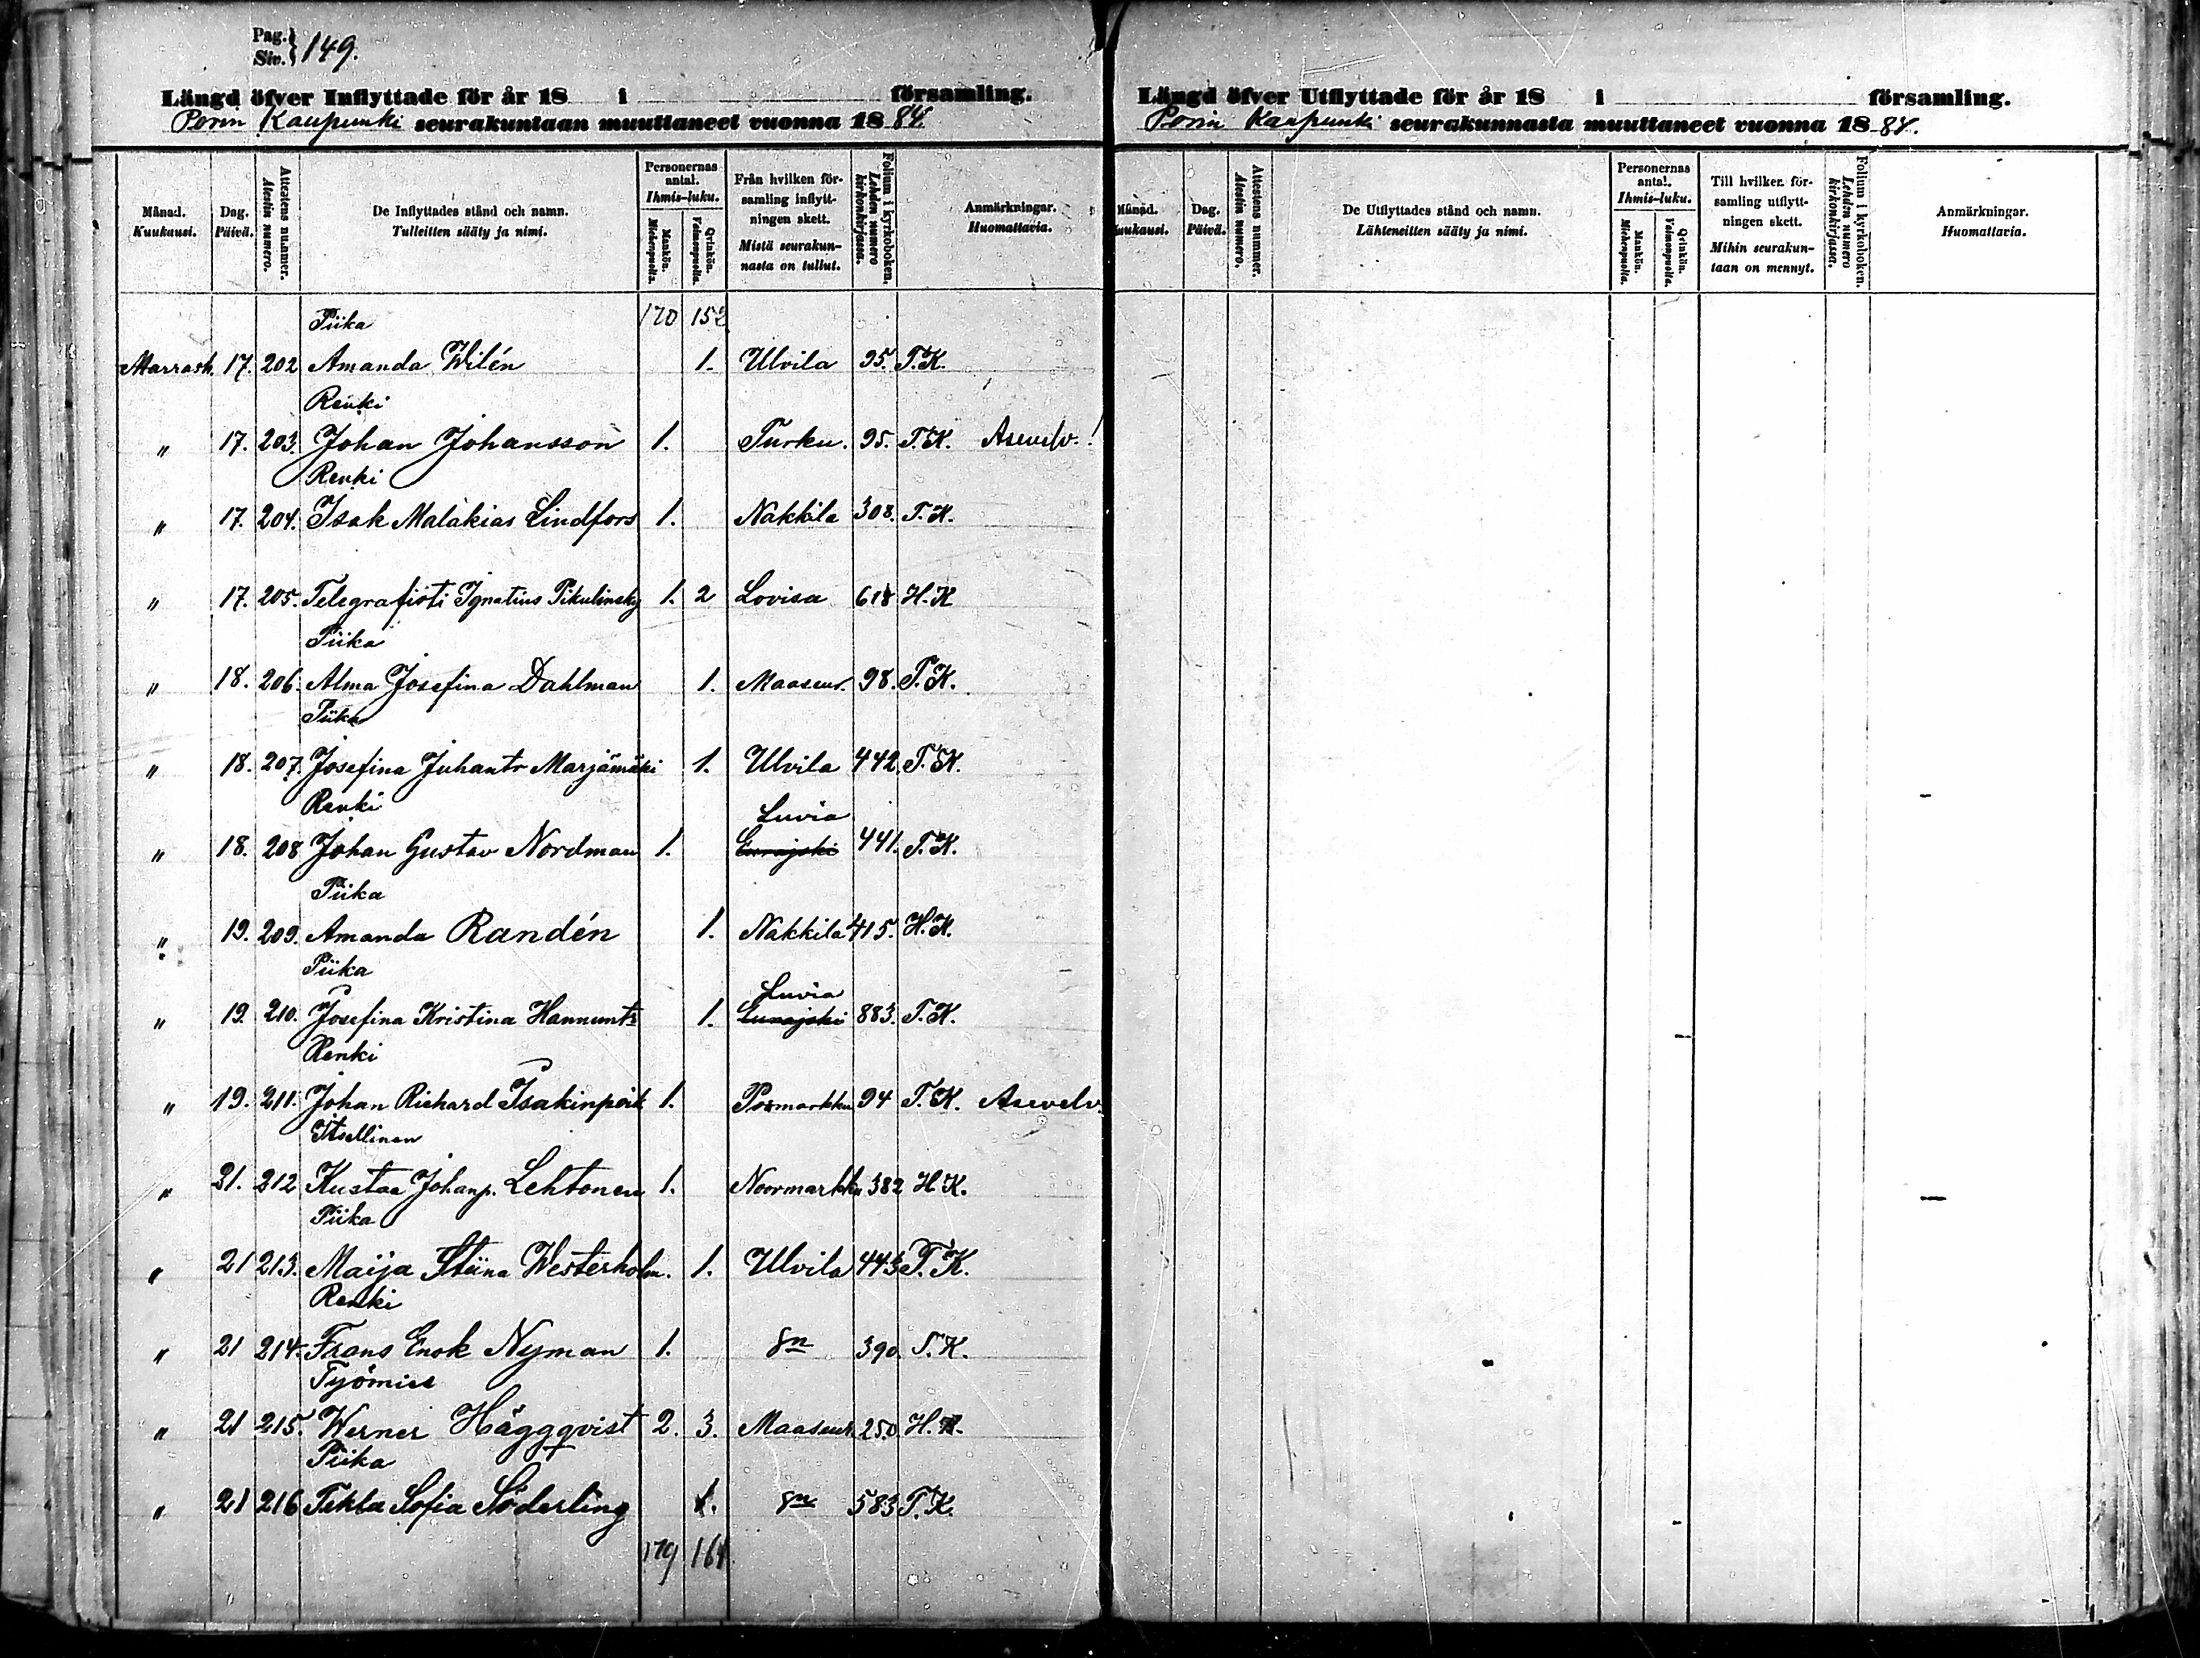 Pag. } 149.
Siv.
Längd öfver Inflyttade för år 18 i församling.
Porin Kaupunki seurakuntaan muuttaneet vuonna 1884.
Månad. Kuukausi.
Dag. Päivä.
Attestens nummer. Atestin numero.
De Inflyttades stånd och namn. Tulleitten sääty ja nimi.
Personernas antal. Ihmis-luku.
Mankön. Miehenpuolta.
Qvinkön. Vaimonpuolta.
Från hvilken församling inflyttningen skett. Mistä seurakunnasta on tullut.
Folium i kyrkoboken. Lehden numero kirkonkirjassa.
Anmärkningar. Huomattavia.
170 152
Piika
Marrask. 17. 202 Amanda Wilén 1. Ulvila 95. T.K.
Renki
" 17. 203. Johan Johansson 1. Turku. 95. T.K. Asevelv.!
Renki
" 17. 204. Isak Malakias Lindfors 1. Nakkila 308. T.K.
" 17. 205. Telegrafisti Ignatius Pikulinsky 1. 2 Lovisa 618 H.K
Piika
" 18. 206. Alma Josefina Dahlman 1. Maaseur. 98. T.K.
Piika
" 18. 207. Josefina Juhantr Marjamäki 1. Ulvila 442. T.K.
Renki
Luvia
" 18. 208 Johan Gustav Nordman 1. Eurajoki 441. T.K.
Piika
" 19. 209. Amanda Randén 1. Nakkila 415. H.K.
Piika
Luvia
" 19. 210. Josefina Kristina Hannunt: 1. Eurajoki 883. T.K.
Renki
" 19. 211. Johan Richard Isakinpoik 1. Pormarkku 94 T.K. Asevelv.
Itsellinen
" 21. 212 Kustaa Johanp. Lehtonen 1. Noormarkku 382 H.K.
Piika
" 21 213. Maija Stiina Westerholm. 1. Ulvila 443 T.K.
Renki
" 21 214. Frans Enok Nyman 1. Sn 390. T.K.
Työmies
" 21 215. Werner Häggqvist 2. 3. Maaseur. 250. H.K.
Piika
" 21 216 Tekla Sofia Söderling 1. Sn 583 T.K.
179 164
Längd öfver Utflyttade för år 18 i församling.
Porin Kaupunki seurakunnasta muuttaneet vuonna 1884.
Månad. Kuukausi.
Dag. Päivä.
Attestens nummer. Atestin numero.
De Utflyttades stånd och namn. Lähteneitten sääty ja nimi.
Personernas antal. Ihmis-luku.
Mankön. Miehenpuolta.
Qvinkön. Vaimonpuolta.
Till hvilken församling utflyttningen skett. Mihin seurakuntaan on mennyt.
Folium i kyrkoboken. Lehden numero kirkonkirjassa.
Anmärkningar. Huomattavia.